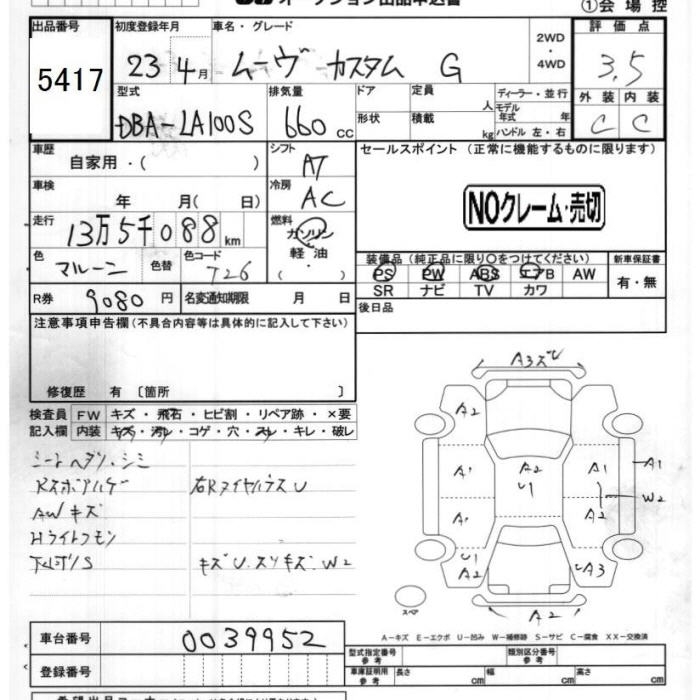 オークション出品申込書
①会場控
出品番号 初度登録年月 車名・グレード 2WD・4WD 評価点
5417 23年4月 ムーヴ カスタム G 3.5
型式 排気量 ドア 定員 人 ディーラー・並行 外装 内装
DBA-LA100S 660cc 形状 積載 kg モデル年式 年 ハンドル 左・右 C C
車歴 自家用・( ) シフト AT セールスポイント (正常に機能するものに限ります)
車検 年 月( 日) 冷房 AC NOクレーム・売切
走行 13万5千088km 燃料 ガソリン・軽油・( )
色 マルーン 色替 色コード T26 装備品(純正品に限り○をつけてください) 新車保証書
PS PW ABS エアB AW 有・無
SR ナビ TV カワ
R券 9080円 名変通知期限 月 日 後日品
注意事項申告欄(不具合内容等は具体的に記入して下さい)
修復歴 有〔箇所 〕
検査員 FW キズ・飛石・ヒビ割・リペア跡・×要
記入欄 内装 キズ・汚レ・コゲ・穴・スレ・キレ・破レ
シートヘタリ・シミ
AWキズ
Hライトクモリ
キズU.スリキズ W2
A3キズU
A2
A1 A2 U1 A1 A1
W2
A1 A2
U1 A2 UA3
A2
スペア
A-キズ E-エクボ U-凹み W-補修跡 S-サビ C-腐食 XX-交換済
車台番号 0039952 型式指定番号 参考 類別区分番号 参考
登録番号 車庫証明用 参考 長さ cm 幅 cm 高さ cm